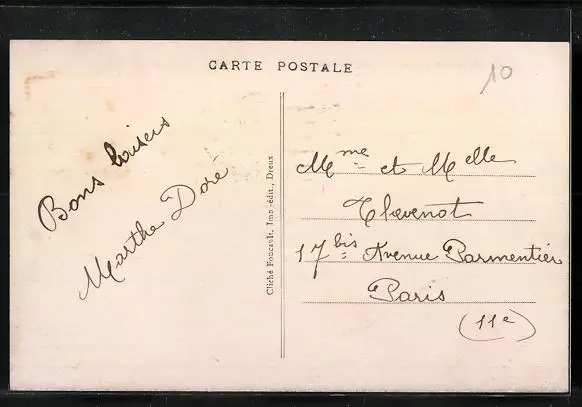 CARTE POSTALE
10
Bons baisers
Marthe Doré
Cliché Foucault, Imp.-édit., Dreux
Mme et Melle
Thevenot
17bis Avenue Parmentier
Paris
(11e)